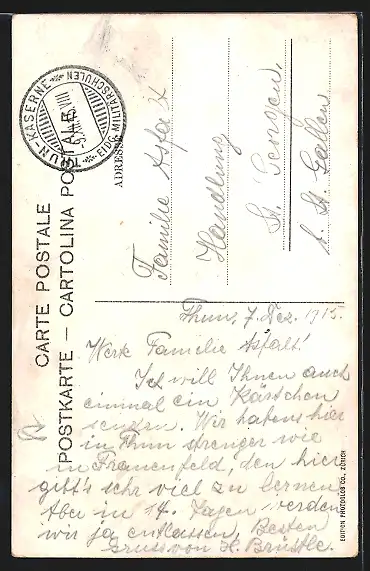 CARTE POSTALE
POSTKARTE — CARTOLINA POSTALE
THUN-KASERNE
EIDG. MILITÄRSCHULEN
ADRESSE
Familie Asfalt
Handlung
St. Georgen,
b. St. Gallen
Thun, 7. Dez. 1915.
Werte Familie Asfalt!
Ich will Ihnen auch
einmal ein Kärtchen
senden. Wir habens hier
in Thun strenger wie
in Frauenfeld, den hier
gitt's sehr viel zu lernen
Aber in 14. Tagen werden
wir ja entlassen, Besten
Gruss von H. Brüstle.
EDITION PHOTOGLOB CO., ZÜRICH